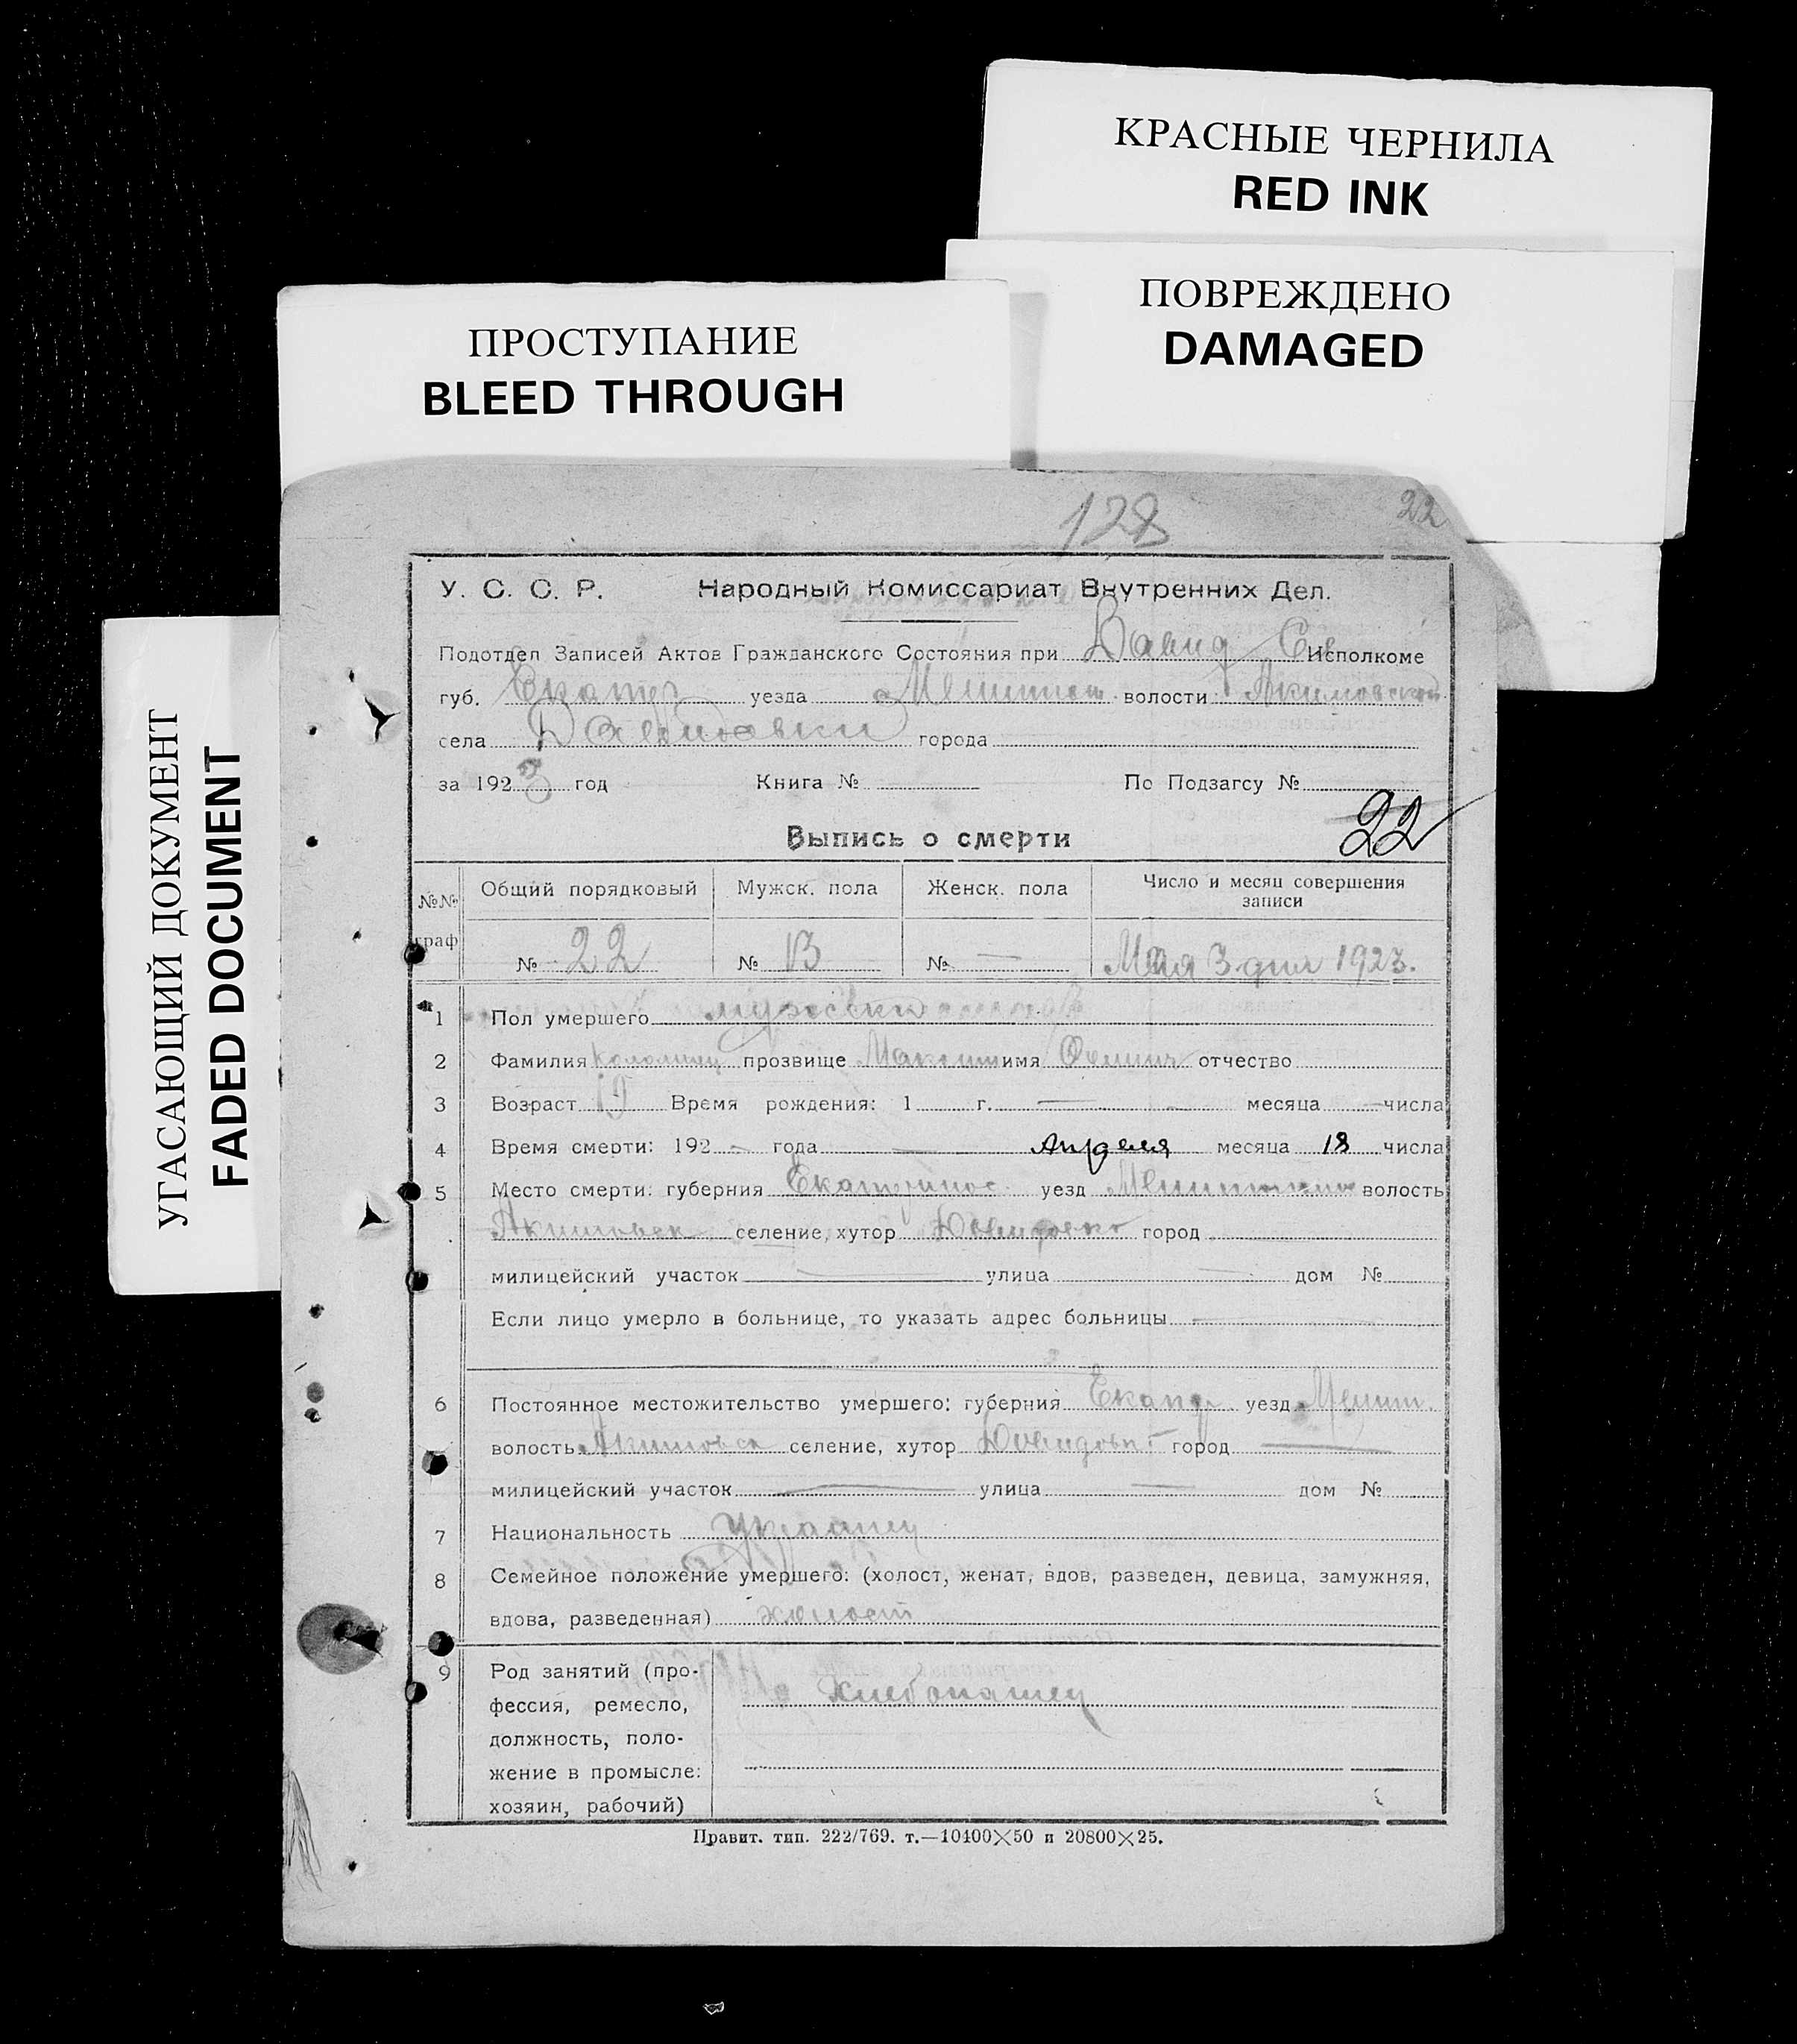 КРАСНЫЕ ЧЕРНИЛА
RED INK
ПОВРЕЖДЕНО
DAMAGED
ПРОСТУПАНИЕ
BLEED THROUGH
УГАСАЮЩИЙ ДОКУМЕНТ
FADED DOCUMENT
128 22
У. С. С. Р. Народный Комиссариат Внутренних Дел.
Подотдел Записей Актов Гражданского Состояния при Давид Исполкоме
губ. Екатер уезда волости Акимовской
села Давидовки города
за 1923 год Книга № По Подзагсу №
22
Выпись о смерти
№№ граф Общий порядковый Мужск. пола Женск. пола Число и месяц совершения записи
№ 22 № 13 № — Мая 3 дня 1923.
1 Пол умершего
2 Фамилия прозвище имя отчество
3 Возраст Время рождения: 1 г. — месяца — числа
4 Время смерти: 192 года — Апреля месяца 18 числа
5 Место смерти: губерния Екатеринос. уезд волость
селение, хутор город
милицейский участок — улица — дом №
Если лицо умерло в больнице, то указать адрес больницы —
6 Постоянное местожительство умершего: губерния Екатер уезд Мелит.
волость селение, хутор город —
милицейский участок — улица — дом №
7 Национальность
8 Семейное положение умершего: (холост, женат, вдов, разведен, девица, замужняя,
вдова, разведенная) холост
9 Род занятий (про-
фессия, ремесло, хлебопашец
должность, поло-
жение в промысле:
хозяин, рабочий)
Правит. тип. 222/769. т.—10400×50 и 20800×25.